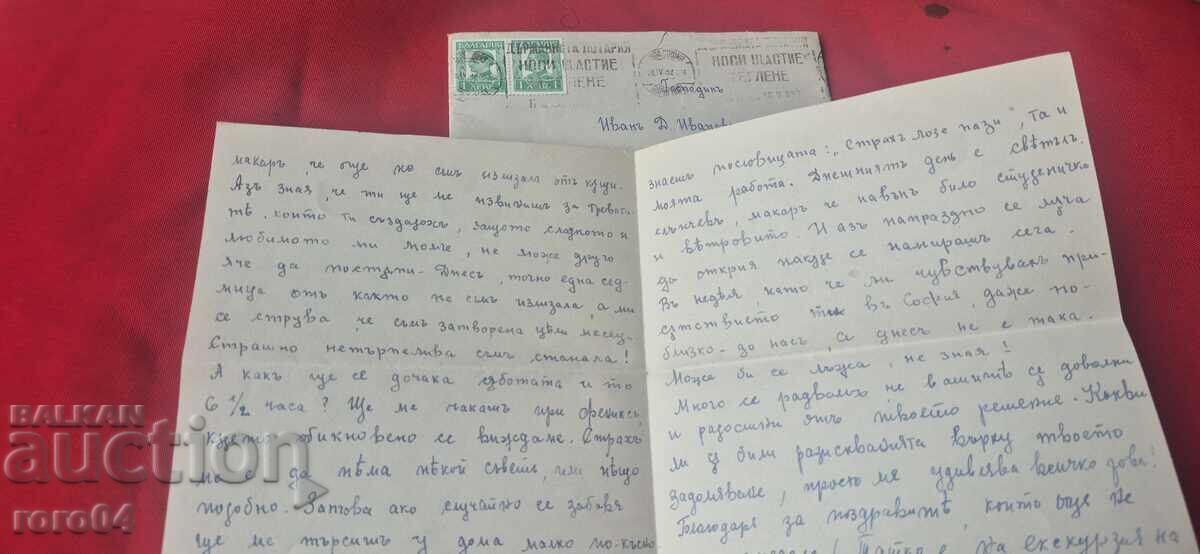 БЪЛГАРИЯ
1 ЛЕВЪ 1
ДЪРЖАВНАТА ЛОТАРИЯ
НОСИ ЩАСТИЕ
НОСИ ЩАСТИЕ
Господинъ
Иванъ Д. Ивановъ
макаръ, че още не съмъ излизала отъ кѫщи.
Азъ зная, че ти ще ме извинишъ за тревоги-
тѣ, които ти създадохъ, защото сладкото и
любимото ми момче, не може друго
яче да постѫпи. Днесъ, точно една сед-
мица отъ както не съмъ излизала, а ми
се струва, че съмъ затворена цѣли месец
Страшно нетърпелива съмъ станала!
А какъ ще се дочака сѫботата и то
6 1/2 часа? Ще ме чакашъ при Фениксъ
кѫдето обикновено се виждаме. Страхъ
ме е да нѣма нѣкой съветъ, или нѣщо
подобно. Затова ако случайно се забавя
ще ме търсишъ у дома малко по-късно
знаешъ пословицата: "Страхъ лозе пази", та и
моята работа. Днешниятъ день е свѣтълъ
слънчевъ, макаръ че навънъ било студеничко
и вѣтровито. И азъ напраздно се мѫча
да открия накѫде се намирашъ сега.
Въ неделя, като че ли чувствувахъ при-
сѫтствието ти въ София, даже по-
близко - до насъ, а днесъ не е така.
Може би се лъжа, не зная!
Много се радвамъ че вашитѣ сѫ доволни
и радостни отъ твоето решение. Какви
ли сѫ били разисквания върху твоето
задомяване, просто ме удивлява всичко това!
Благодаря за поздравитѣ, които още не
Татко е на екскурзия на
BALKAN
auction
roro04